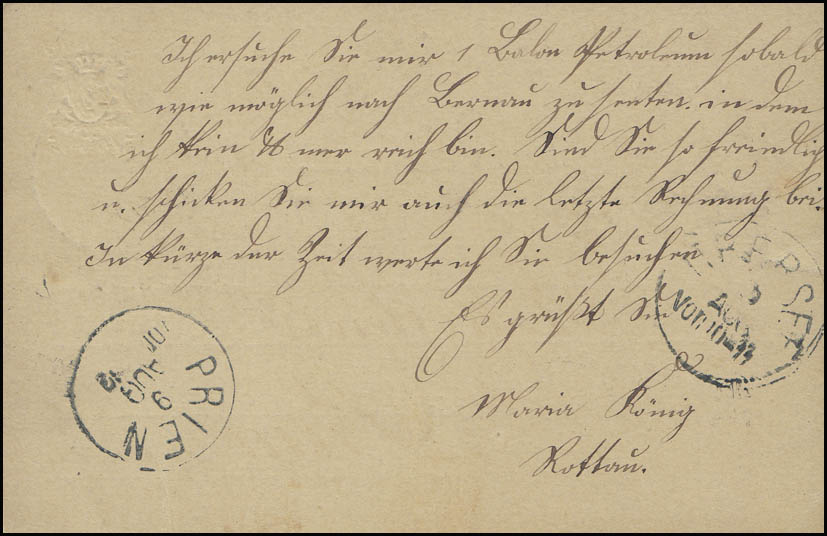 Ich ersuche Sie mir 1 Balon Petroleum sobald
wie möglich nach Bernau zu senten. in dem
ich kein mer reich bin. Sind Sie so freindlich
u. schicken Sie mir auch die letzte Rechnung bei.
In kürze der Zeit werte ich Sie besuchen
Es grüßt Sie
Maria König
Rottau.
PRIEN
9
AUG
AUG